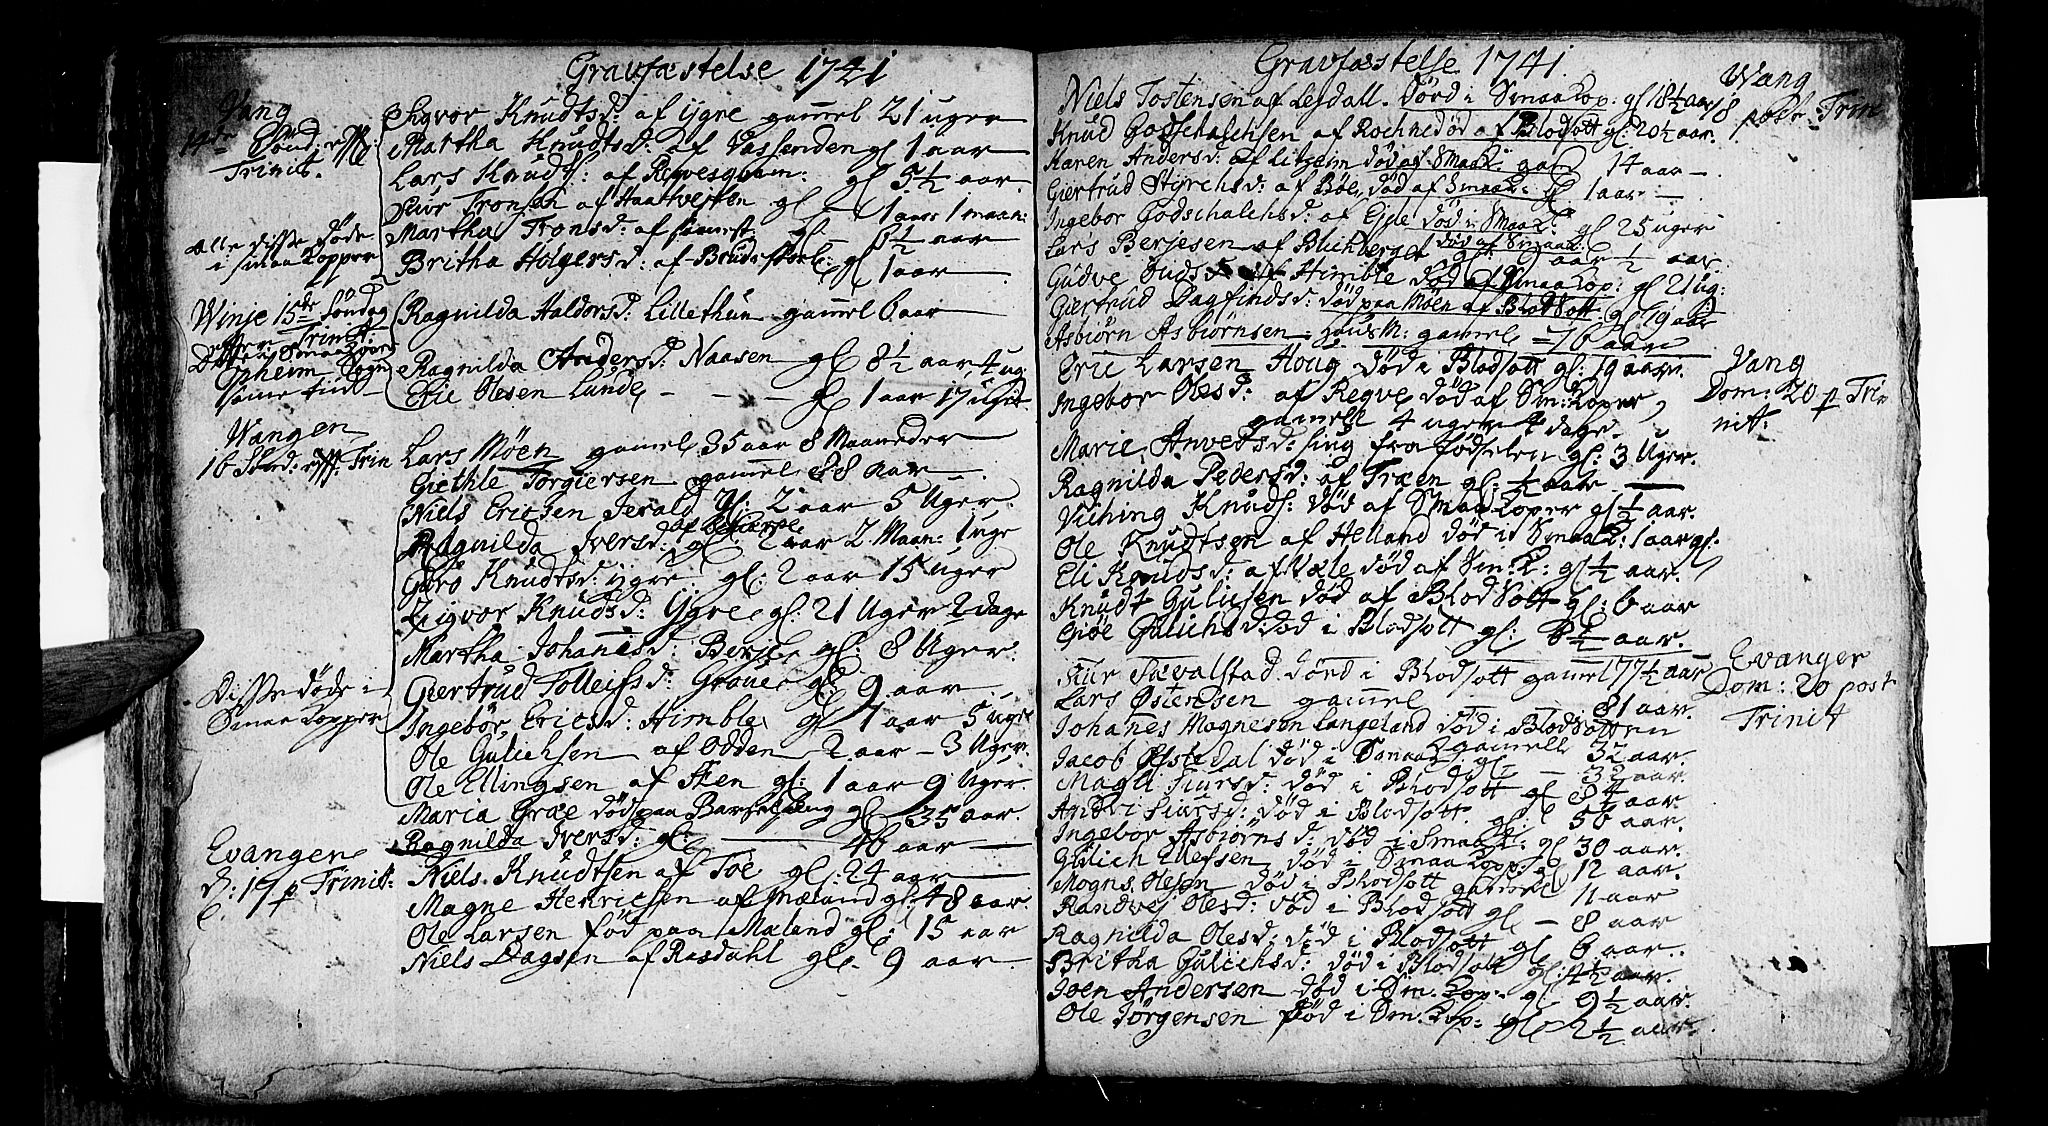 Gravfæstelse 1741
Vang
14de Sønd: eft:
Trinit.
Sigvor Knudtsd: af ijgre gamel 21 uger
Martha Knudtsd: af Vassenden gl 1 aar
Lars Knudts: af Reqvesqvam: gl 5½ aar.
Siur Tronsen af Haatvejten gl – 1 aar 1 maan:
Martha Tronsd: af samest gl – 8½ aar
Britha Holgersd: af Brudestoel: gl 1 aar
Alle disse døde
i smaa Kopper
Winje 15de Søndag
efter Trinit
Ragnilda Haldorsd: Lillethun gamel 6 aar
Opheim Sogn
samme tiid
Ragnilda Andersd: Naasen gl 8½ aar 4 ug
Eric Olesen Lunde – – – gl 1 aar 17 uger
Wangen
16 Sønd: eft: Trin
Lars Möen gamel 35 aar 8 Maaneder
Giethle Torgiersen gammel 88 aar
Niels Ericsen Jerald gl: 2 aar 5 Uger
Ragnilda Iversd: gl 2 aar 2 Maan: 1 uge
Guro Knudtsd: ijgre: gl: 2 aar 15 uger
Zigvor Knudsd: Ygre gl: 21 Uger 2 dage
Martha Johannesd: Berje gl: 8 Uger.
Giertrud Tolleifsd: Grove gl: 9 aar
Ingebor Ericsd: Himble gl 1 aar 5 uger
Ole Gulichsen af Odden 2 aar – 3 Uger.
Ole Ellingsen af Steen gl: 1 aar 9 Uger.
Disse døde i
Smaa Kopper
Maria Græe død paa Barselseng gl 35 aar.
Ragnilda Iversd: gl: 46 aar
Evanger
d: 17 p Trinit:
Niels Knudtsen af Toe gl: 24 aar
Magne Henricsen af Mæland gl: 48 aar.
Ole Larsen fød paa Mæland gl: 15 aar
Niels Dagsen af Rasdahl gl. 9 aar.
Gravfæstelse 1741.
Wang
18 post Trin
Niels Tostensen af Lejdall. Dörd i Smaa Kop: gl 18½ aar
Knud Godschalchsen af Rochne død af Blodsott gl: 20½ aar.
Karen Andersd: af Litheim død af Smaa K: gam 14 aar –
Giertrud Styrchsd: af Böe, død af Smaak: gl 1 aar –
Ingebor Godschalchsd: af Egde død i Smaa K: gl 25 uger
Lars Berjesen af Blichberget død af Smaak: gl 9 aar ½ aar
Gudve Oudsd af Himble død af Smaa Kop: gl 21 ug:
Giertrud Dagfindsd: død paa Möen af Blodsott. gl 19 aar
Asbiörn Asbiörnsen: Huus M: gamel – 76 aar
Vang
Dom: 20 p Tri
nit:
Eric Larsen Houg död i Blodsott gl: 19 aar.
Ingebor Olesd: af Reqve död af Sm: Koper
gamell 4 uger 4 dage.
Marie Anvedsd: siug fra födselen gl: 3 Uger.
Ragnilda Pedersd: af Træen gl: ½ aar
Viching Knuds: död af Smaa Koper gl ½ aar.
Ole Knudtsen af Helland död i Smaa K: 1 aar gl.
Eli Knudsd: af Væle död af Sm: K: gl ½ aar.
Knudt Gulichsen död af Blod Sott gl: 6 aar
Giöe Gulichsd: död i Blodsott gl: 8½ aar.
Evanger
Dom: 20 post
Trinit
Siur Sævalstad dörd i Blodsott gamel 77½ aar
Lars Östensen gammel – 81 aar.
Johanes Mognesen Langeland död i Blodsotten
gamell 32 aar.
Jacob Öfstedal död i Smaak: gl – 32 aar.
Magli Siursd: död i Blodsott gl 84 aar.
Andvi Siursd: död i Blodsott. gl: 56 aar.
Ingebor Asbiörnsd: död i Smaak: gl 30 aar.
Gulich Ellefsen död i Smaa Kopp: gl 12 aar.
Mogns Olesen död i Blodsott gamel 11 aar
Randvej Olesd: död i Blodsott gl – 8 aar
Ragnilda Olesd: död i Blodsott gl 6 aar.
Britha Gulichsd: död i Blodsott gl: 4½ aar.
Joen Andersen död i Sm. Kop: gl 9½ aar.
Ole Jörgensen död i Sm. Kop: gl 2½ aar.